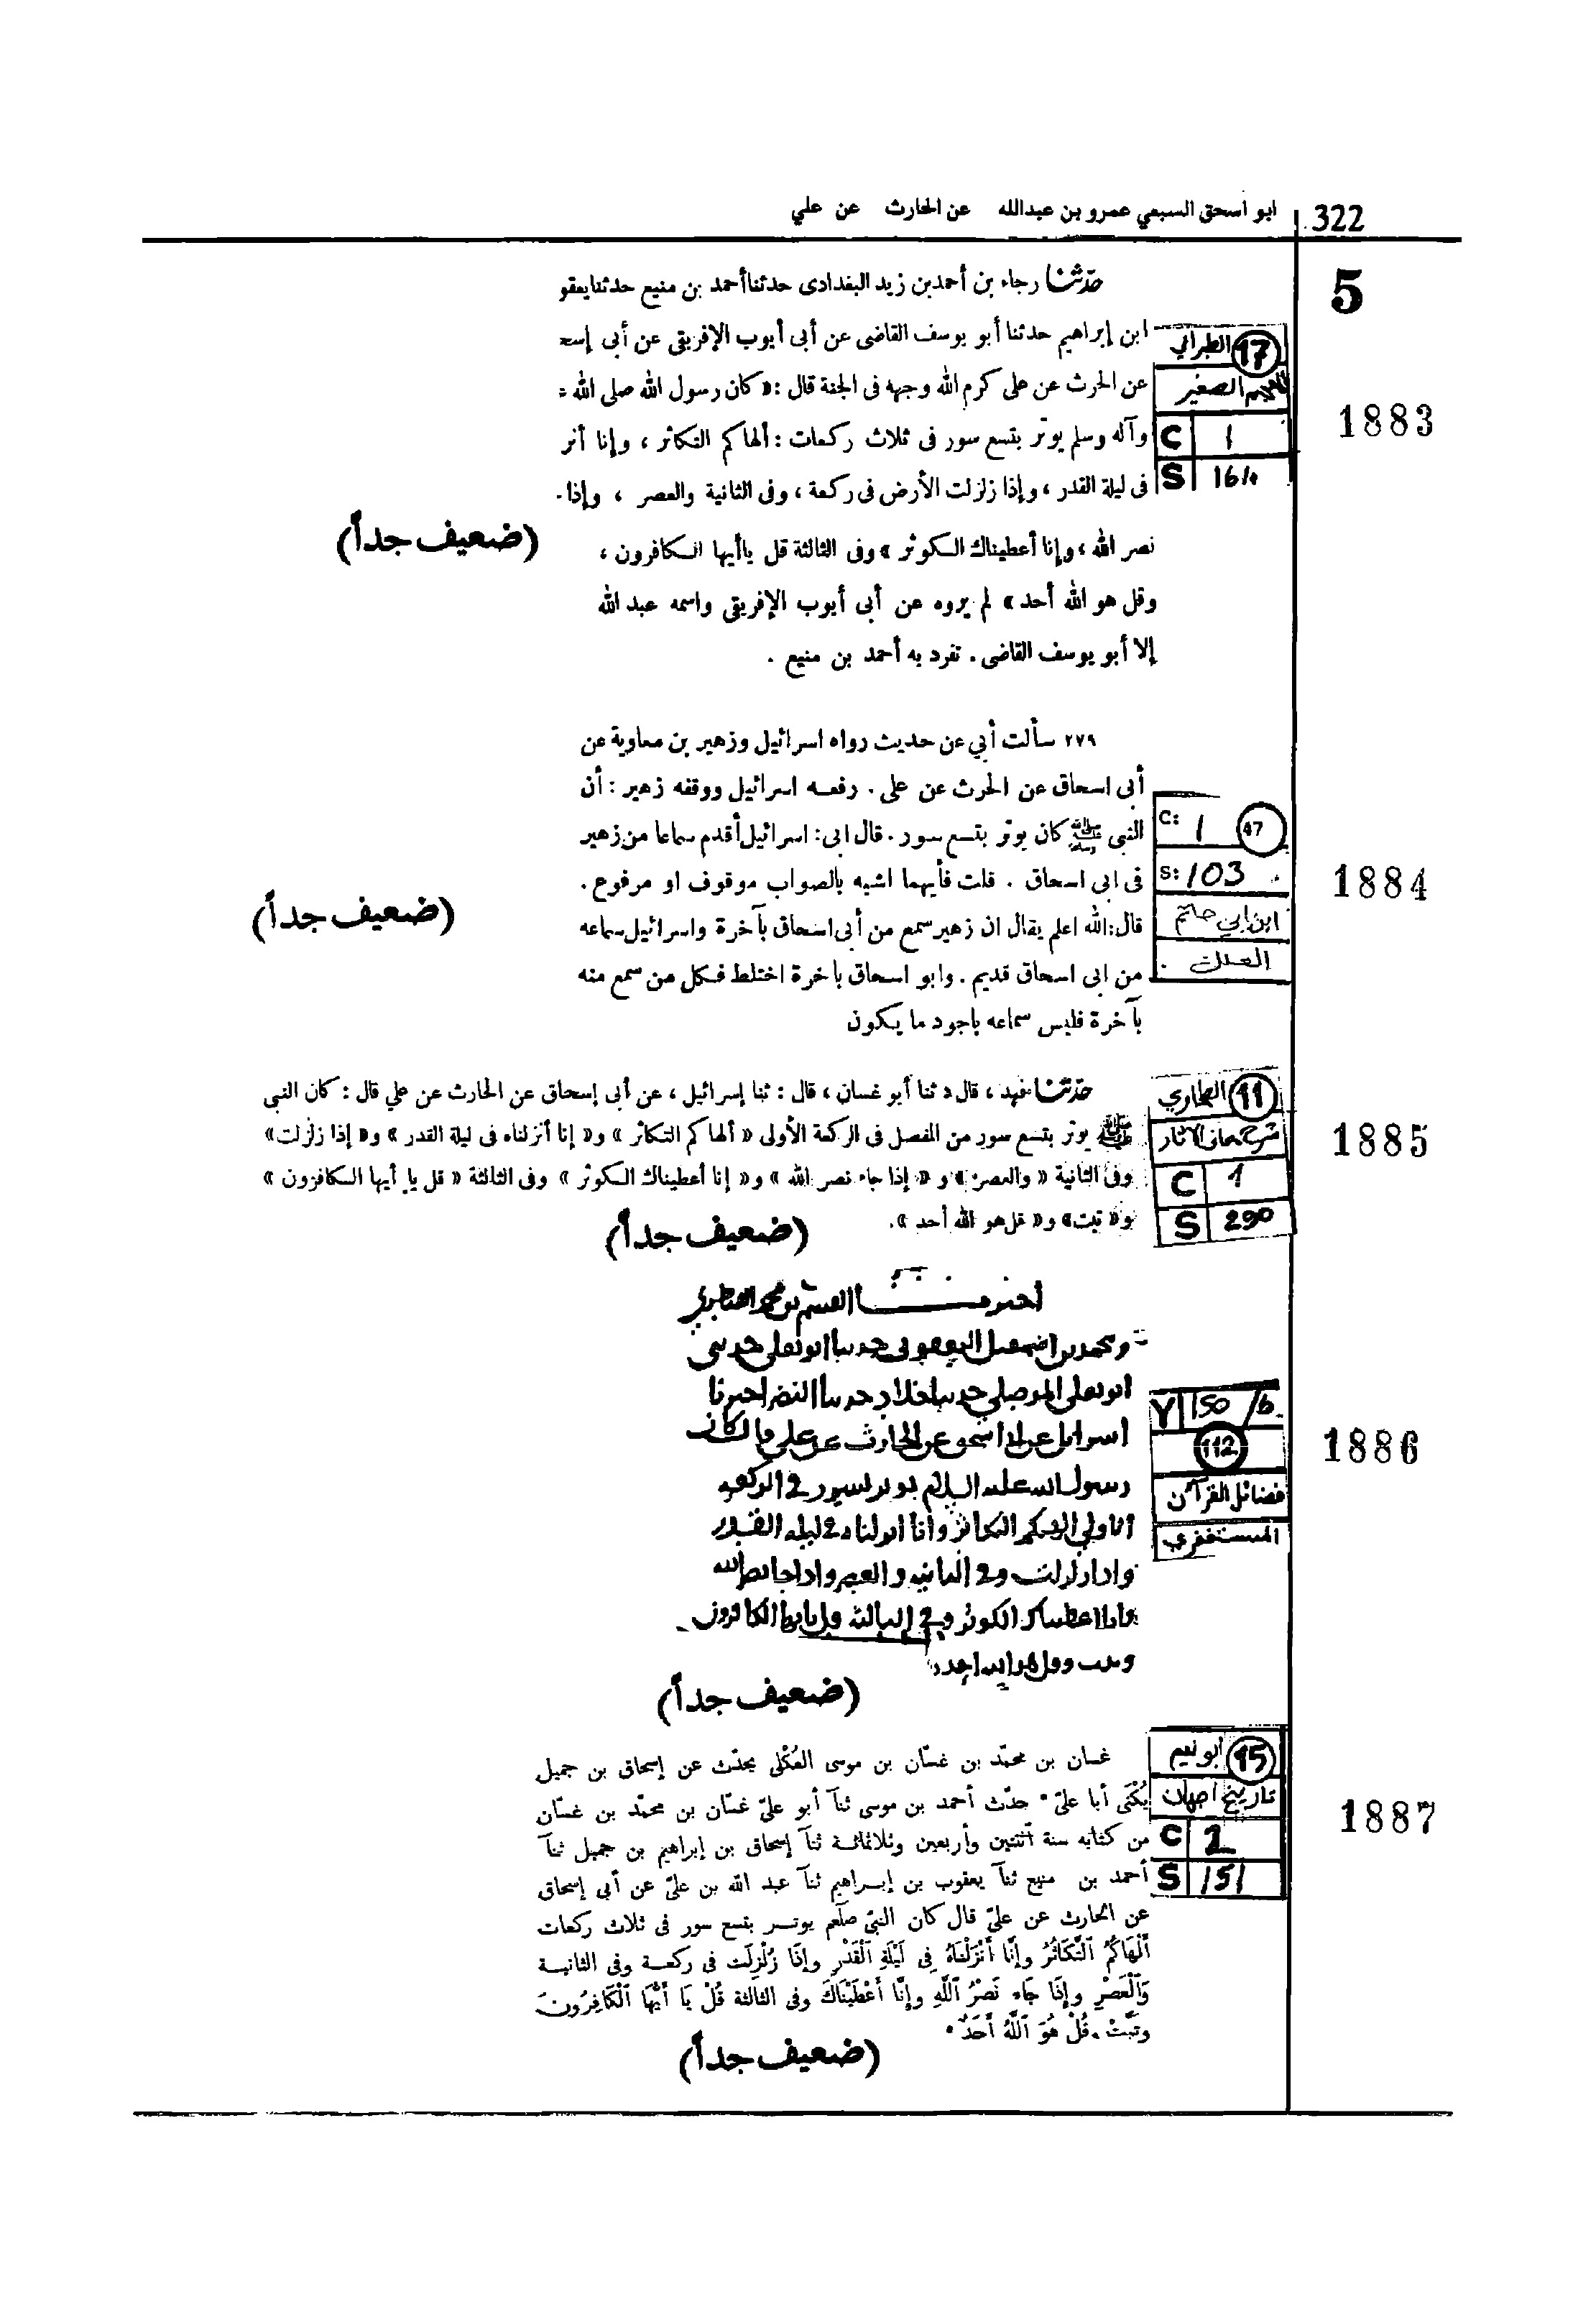 322 ابو اسحق السبعي عمرو بن عبدالله عن الحارث عن علي
5
حدّثنا رجاء بن أحمد بن زيد البغدادى حدثنا أحمد بن منيع حدثنا يعقو
ابن إبراهيم حدثنا أبو يوسف القاضى عن أبى أيوب الإفريقى عن أبى إسح
عن الحرث عن على كرم الله وجهه فى الجنة قال : « كان رسول الله صلى الله
وآله وسلم يوتر بتسع سور فى ثلاث ركعات : ألهاكم التكاثر ، وإنا أنز
فى ليلة القدر ، وإذا زلزلت الأرض فى ركعة ، وفى الثانية والعصر ، وإذا
نصر الله ، وإنا أعطيناك الكوثر » وفى الثالثة قل ياأيها الكافرون ،
وقل هو الله أحد » لم يروه عن أبى أيوب الإفريقى واسمه عبد الله
إلا أبو يوسف القاضى . تفرد به أحمد بن منيع .
(ضعيف جداً)
17 الطبراني
المعجم الصغير
C 1
S
1883
٢٧٩ سألت أبي عن حديث رواه اسرائيل وزهير بن معاوية عن
أبى اسحاق عن الحرث عن على . رفعه اسرائيل ووقفه زهير : أن
النبى ﷺ كان يوتر بتسع سور . قال ابى : اسرائيل أقدم سماعا من زهير
فى ابى اسحاق . قلت فأيهما اشبه بالصواب موقوف او مرفوع .
قال : الله اعلم يقال ان زهير سمع من أبى اسحاق بآخرة واسرائيل سماعه
من ابى اسحاق قديم . وابو اسحاق باخرة اختلط فكل من سمع منه
بآخرة فليس سماعه باجود ما يكون
(ضعيف جداً)
C: 1 47
S: 103
ابن ابي حاتم
العلل
1884
حدّثنا فهد ، قال : ثنا أبو غسان ، قال : ثنا إسرائيل ، عن أبى إسحاق عن الحارث عن علي قال : كان النبى
ﷺ يوتر بتسع سور من المفصل فى الركعة الأولى « ألهاكم التكاثر » و« إنا أنزلناه فى ليلة القدر » و« إذا زلزلت»
وفى الثانية « والعصر » و « إذا جاء نصر الله » و« إنا أعطيناك الكوثر » وفى الثالثة « قل يا أيها الكافرون »
و« تبت» و« قل هو الله أحد ».
(ضعيف جداً)
11 الطحاوي
شرح معاني الآثار
C 1
S 290
1885
ابو يعلى الموصلي حدثنا خلاد حدثنا النضر اخبرنا
اسرايل عن ابي اسحق عن الحارث عن علي قال كان
رسول الله عليه السلام يوتر بتسع سور في الركعه
الاولي الهيكم التكاثر وانا انزلناه في ليله القدر
واذا زلزلت وفي الثانيه والعصر واذا جا نصر الله
وانا اعطيناك الكوثر وفي الثالثه قل يايها الكافرون
وتبت وقل هو الله احد
(ضعيف جداً)
Y 150/b
112
فضائل القرآن
المستغفري
1886
غسان بن محمّد بن غسّان بن موسى العُكْلى يحدّث عن إسحاق بن جميل
يُكْنَى أبا علىّ • حدّث أحمد بن موسى ثنآ أبو علىّ غسّان بن محمّد بن غسّان
من كتابه سنة آثنتين وأربعين وثلاثمائة ثنآ إسحاق بن إبراهيم بن جميل ثنآ
أحمد بن منيع ثنآ يعقوب بن إبراهيم ثنآ عبد الله بن علىّ عن أبى إسحاق
عن الحارث عن علىّ قال كان النبىّ صلّعم يوتر بتسع سور فى ثلاث ركعات
أَلْهَاكُمُ ٱلتَّكَاثُرُ وإنَّا أَنْزَلْنَاهُ فِى لَيْلَةِ ٱلْقَدْرِ وإذَا زُلْزِلَت فى ركعة وفى الثانية
وَٱلْعَصْرِ وإذَا جَاء نَصْرُ ٱللَّهِ وإنَّا أَعْطَيْنَاكَ وفى الثالثة قُلْ يَا أَيُّهَا ٱلْكَافِرُونَ
وتَبَّتْ وقُلْ هُوَ ٱللَّهُ أَحَدٌ •
(ضعيف جداً)
15 أبو نعيم
تاريخ اصبهان
C 2
S 151
1887